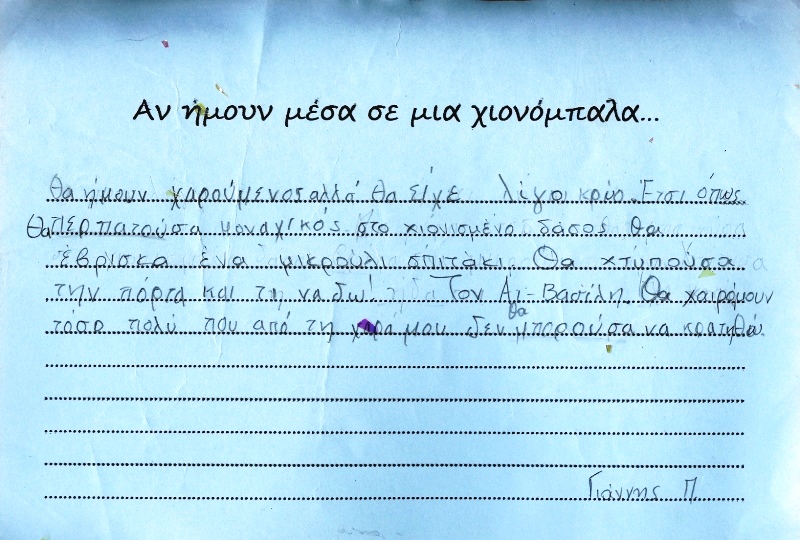 Αν ήμουν μέσα σε μια χιονόμπαλα...
Θα ήμουν χαρούμενος αλλά θα είχε λίγο κρύο. Έτσι όπως
θα περπατούσα μοναχικός στο χιονισμένο δάσος θα
έβρισκα ένα μικρούλι σπιτάκι. Θα χτυπούσα
την πόρτα και τι να δω! Τον Αϊ-Βασίλη. Θα χαιρόμουν
τόσο πολύ που από τη χαρά μου δεν θα μπορούσα να κρατηθώ.
Γιάννης Π.